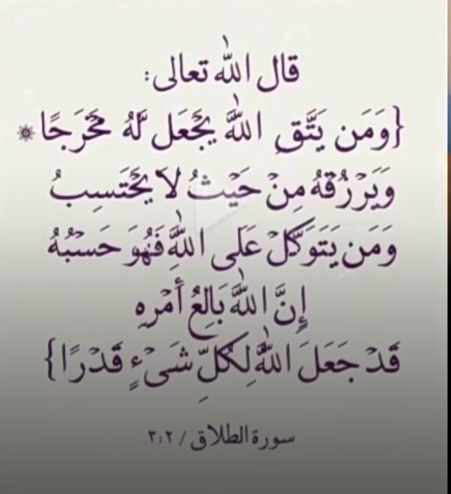 قال الله تعالى:
{وَمَن يَتَّقِ اللَّهَ يَجْعَل لَّهُ مَخْرَجًا ۞
وَيَرْزُقْهُ مِنْ حَيْثُ لَا يَحْتَسِبُ
وَمَن يَتَوَكَّلْ عَلَى اللَّهِ فَهُوَ حَسْبُهُ
إِنَّ اللَّهَ بَالِغُ أَمْرِهِ
قَدْ جَعَلَ اللَّهُ لِكُلِّ شَيْءٍ قَدْرًا}
سورة الطلاق / ٣:٢